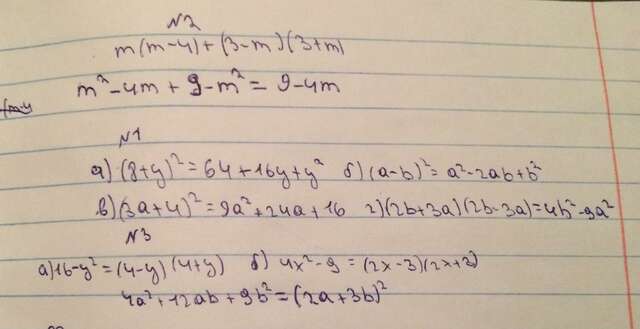 №2
m(m-4)+(3-m)(3+m)
m²-4m+9-m²=9-4m
№1
а)(8+y)²=64+16y+y² б)(a-b)²=a²-2ab+b²
в)(3a+4)²=9a²+24a+16 г)(2b+3a)(2b-3a)=4b²-9a²
№3
а)16-y²=(4-y)(4+y) б)4x²-9=(2x-3)(2x+3)
4a²+12ab+9b²=(2a+3b)²